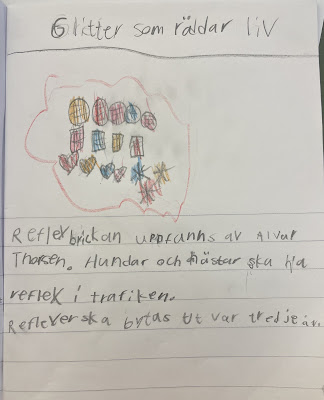 Glitter som räddar liv
Reflexbrickan uppfanns av Alvar
Thorsen. Hundar och hästar ska ha
reflek i trafiken.
Reflever ska bytas ut var tredje år.